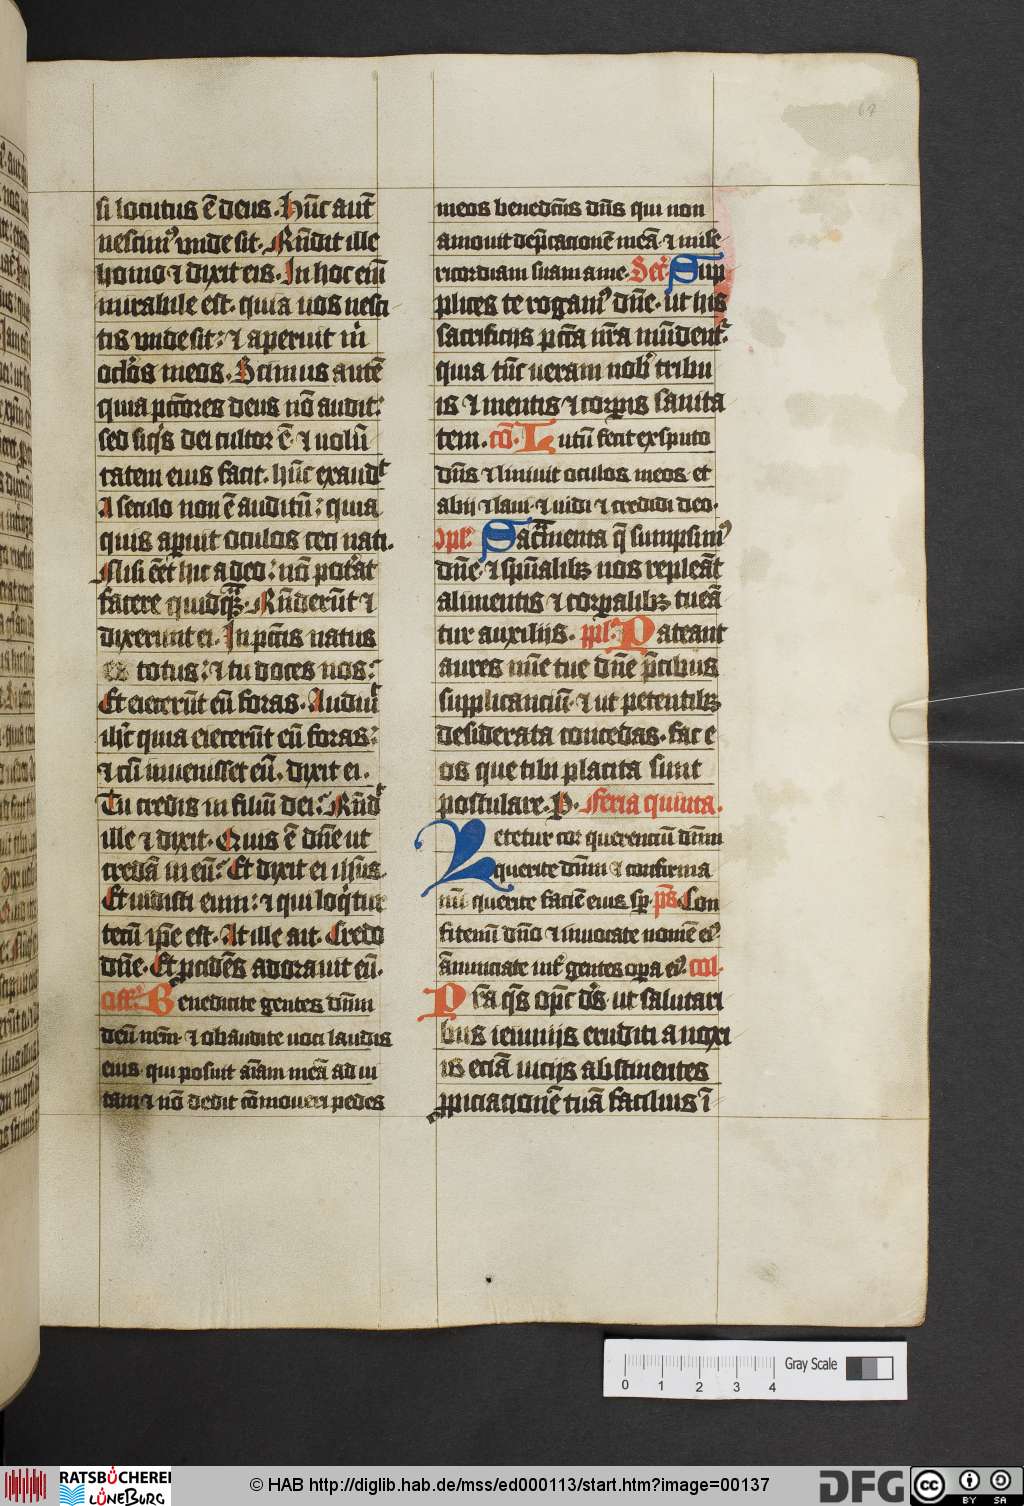 si locutus ē deus. Hūc aut̄
nescim⁹ vnde sit. Rn̄dit ille
homo ⁊ dixit eis. In hoc eni̅
mirabile est. quia vos nesci
tis vnde sit: ⁊ aperuit m̄
oc̄los meos. Scimus autē
quia pcc̄ores deus nō audit:
sed siq̄s dei cultor ē. ⁊ volū
tatem eius facit. hūc exaud̄t
A seculo non ē auditū: quia
quis apuit oculos ceci nati.
Nisi eēt hic a deo: nō pot̄at
facere quidq̄. Rn̄derūt ⁊
dixerunt ei. In pcc̄is natus
es totus: ⁊ tu doces nos:
Et eiecerūt eū foras. Audiuit
ih̄c quia eiecerūt eū foras:
⁊ cū inuenisset eū. dixit ei.
Tu credis in filiū dei: Rn̄d̄t
ille ⁊ dixit. Quis ē dn̄e ut
credā in eū: Et dixit ei ih̄us.
Et vidisti eum: ⁊ qui loq̄tur
tecū ip̄e est. At ille ait. Credo
dn̄e. Et pcidēs adorauit eū.
off̄. Benedicite gentes dn̄m
deū nr̄m. ⁊ obaudite voci laudis
eius. qui posuit ai̅am meā ad ui
tam ⁊ nō dedit cō̄moueri pedes
meos benedc̄us dn̄s qui non
amouit dep̄cationē meā. ⁊ mise
ricordiam suam a me. Sec̄. Sup
plices te rogam⁹ dn̄e. ut his
sacrificijs pcc̄a nr̄a mūdent̄.
quia tūc veram nob̄ tribu
is ⁊ mentis ⁊ corpis sanita
tem. cō. Lutū fecit ex sputo
dn̄s ⁊ liniuit oculos meos. et
abij ⁊ laui ⁊ vidi ⁊ credidi deo.
ople. Sacr̄amenta q̄ sumpsim⁹
dn̄e. ⁊ spūalibꝫ nos repleāt
alimentis ⁊ corpalibꝫ tueā
tur auxilijs. ppl̄. Pateant
aures mīe tue dn̄e p̄cibus
supplicanciū. ⁊ ut petentibꝫ
desiderata concedas. fac e
os que tibi placita sunt
postulare. P. Feria quinta.
Letetur cor querenciū dn̄m
querite dn̄m ⁊ confirma
mī. querite faciē eius sp̄. ps̄. Con
fitemī dn̄o ⁊ inuocate nomē ei⁹
ānunciate int̄ gentes opa ei⁹. col.
Pr̄a q̄s omp̄c ds̄. ut salutari
bus ieiunijs eruditi a noxi
is eciā vicijs abstinentes
ppiciacionē tuā facilius ī
0 1 2 3 4
Gray Scale
RATSBÜCHEREI
LÜNEBURG
© HAB http://diglib.hab.de/mss/ed000113/start.htm?image=00137
DFG
cc BY SA